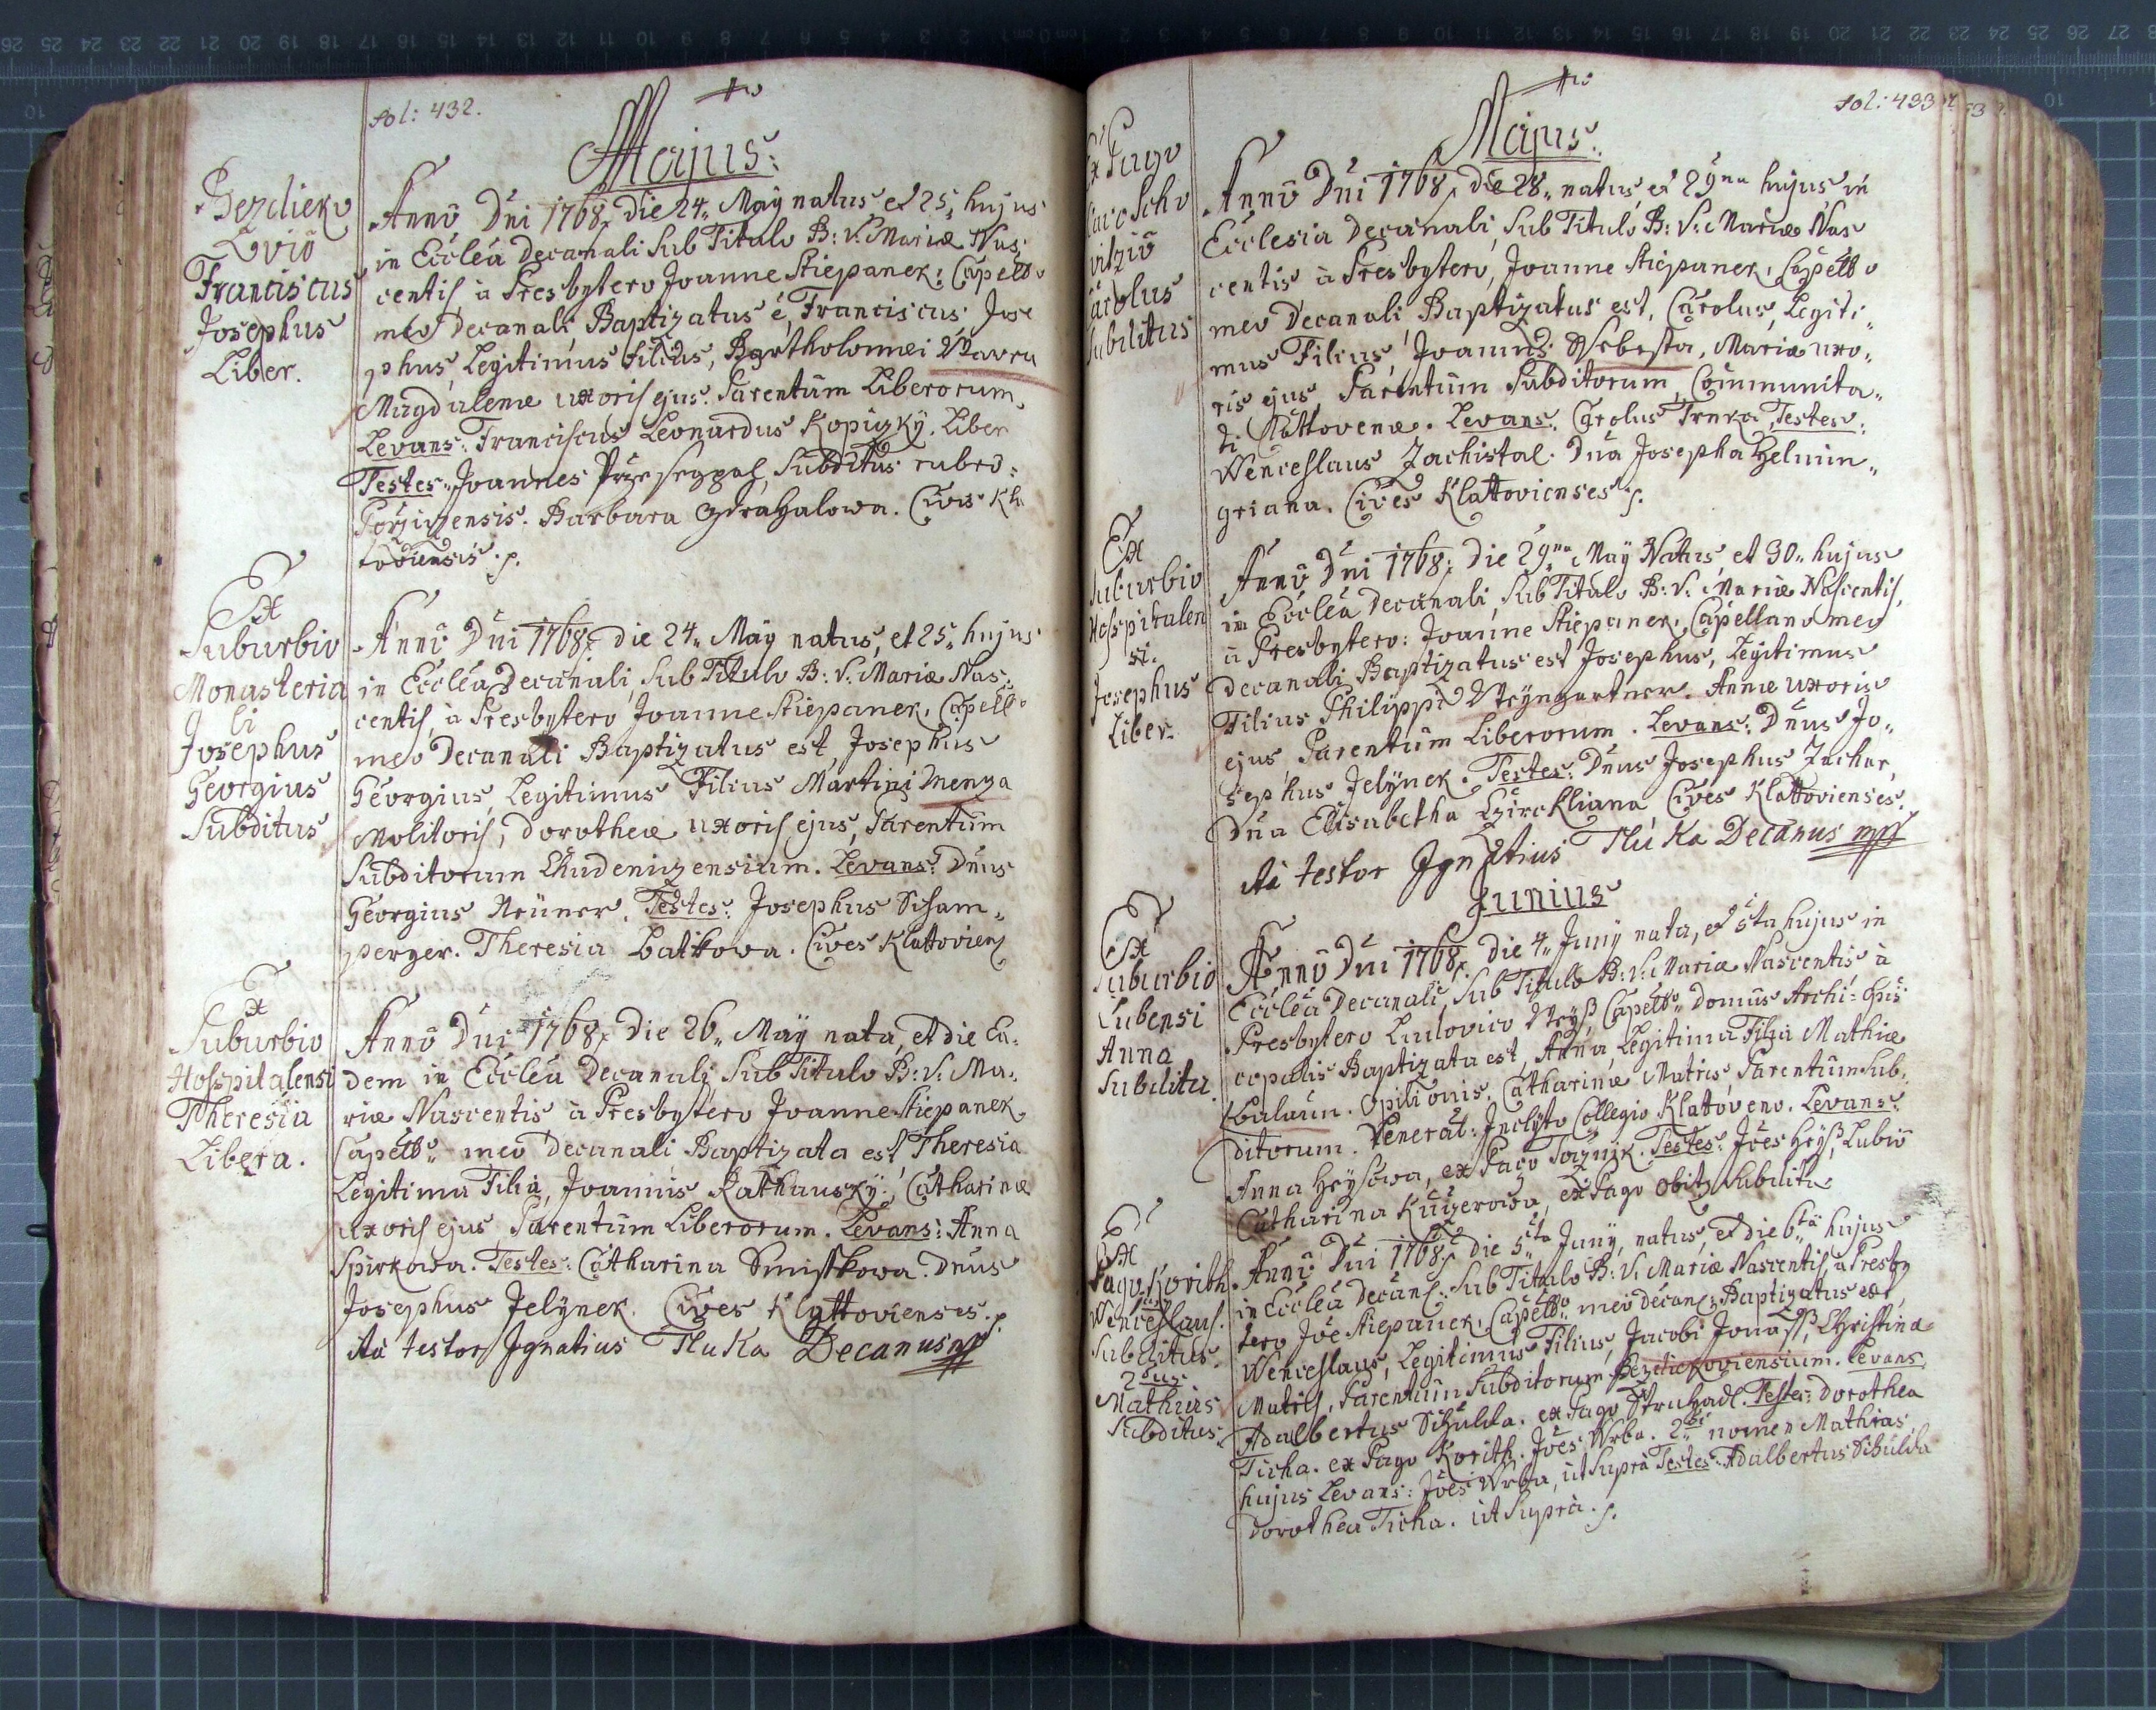 fol: 432.
Majus:
Bezdiekо
Lvio
Franciscus
Josephus
Liber.
Anno Dni 1768, die 24. Maÿ natus et 25. hujus
in Eccléa Decanali Sub Titulo B: V. Mariæ Nas,
centis à Presbytero Joanne Stiepanek, Capello
meo Decanali Baptizatus é, Franciscus Jose
phus, Legitimus filius, Bartholomei Wavra
Magdalenæ uxoris ejus. Parentum Liberorum.
Levans: Franciscus Leonardus Kopizkÿ. Liber
Testes. Joannes Subditus rubro:
Porzizensis. Barbara Zdrahalowa. Cives Kla
toviensis.
Ex
Suburbio
Monasteria
li
Josephus
Georgius
Subditus
Anno Dni 1768, die 24. Maÿ natus, et 25. hujus
in Eccléa Decanali, Sub Titulo B: V: Mariæ Nas:
centis, à Presbytero Joanne Stiepanek, Capello
meo Decanali Baptizatus est, Josephus
Georgius, Legitimus Filius Martini Menza
Molitoris, Dorotheæ uxoris ejus, Parentum
Subditorum Chudenizensium. Levans: Dnus
Georgius Neuner. Testes: Josephus Scham„
perger. Theresia Batikowa. Cives Klattoviens
Ex
Suburbio
Hospitalensi
Theresia
Libera.
Anno Dni 1768, Die 26. Maÿ nata, et die Ea.
dem in Eccléa Decanali Sub Titulo B: V: Ma„
riæ Nascentis à Presbytero Joanne Stiepanek
Capello meo Decanali Baptizata est Theresia
Legitima Filia, Joannis Rathauskÿ, Catharinæ
uxoris ejus Parentum Liberorum. Levans: Anna
Spirkowa. Testes: Catharina Smistkowa. Dnus
Josephus Jelÿnek. Cives Klattovienses.
Ita testor Ignatius Tluka Decanus mp
fol: 433
Majus.
Ex Pago
vitzio
Carolus
Subditus
Anno Dni 1768, die 28. natus, et 29na hujus in
Ecclesia Decanali, Sub Titulo B: V: Mariæ Nas
centis à Presbytero, Joanne Stiepanek, Capello
meo Decanali Baptizatus est, Carolus, Legiti„
mus Filius, Joannis Sebesta, Mariæ uxo„
ris ejus, Parentum Subditorum, Communita„
ti Klattovenæ. Levans: Carolus Trnka, Testes:
Wenceslaus Zachistal. Dna Josepha Helmin„
griana. Cives Klattovienses.
Ex
Suburbio
Hospitalen
si.
Josephus
Liber.
Anno Dni 1768, Die 29na Maÿ Natus, et 30. hujus
in Eccléa Decanali, Sub Titulo B: V: Mariæ Nascentis,
à Presbytero: Joanne Stiepanek, Capellano meo
Decanali Baptizatus est Josephus, Legitimus
Filius Philippi Weÿngartner. Annæ uxoris
ejus Parentum Liberorum. Levans: Dnus Jo„
sephus Jelÿnek. Testes: Dnus Josephus Zachar,
Dna Elisabetha Czirckliana Cives Klattovienses.
Ita testor Ignatius Tluka Decanus mp
Junius
Ex
Suburbio
Lubensi
Anna
Subdita.
Anno Dni 1768, die 4. Junÿ nata, et 5ta hujus in
Eccléa Decanali, Sub Titulo B: V: Mariæ Nascentis à
Presbytero Ludovico Weÿß, Capello Domus Archi=Epis
copalis Baptizata est, Anna, Legitima Filia Mathiæ
Balaun. Opilionis, Catharinæ Matris, Parentum Sub„
ditorum. Venerab: Inclyto Collegio Klattoveno. Levans:
Anna Heÿsowa, ex Pago Toznik. Testes: Joes Heÿß, Lubio
Catharina Kuczerowa, ex Pago Obitz Subditi
Ex
Pago Korith
Wenceslaus.
Subditus.
2dus
Mathias
Subditus.
Anno Dni 1768, die 5ta Junÿ, natus, et die 6ta hujus
in Eccléa Decanl: Sub Titulo B: V: Mariæ Nascentis, à Presby
tero Joe Stiepanek, Capello meo Decanl: Baptizatus est,
Wenceslaus, Legitimus Filius, Jacobi Jonaß, Christinæ
Matris, Parentum Subditorum Bezdiekoviensium. Levans
Adalbertus Schulda. ex Pago Struhadl. Testes: Dorothea
Ticha. ex Pago Korith. Joes Wrba. 2di nomen Mathias
hujus Levans: Joes Wrba, ut Supra Testes: Adalbertus Schulda
Dorothea Ticha. ut Supra.